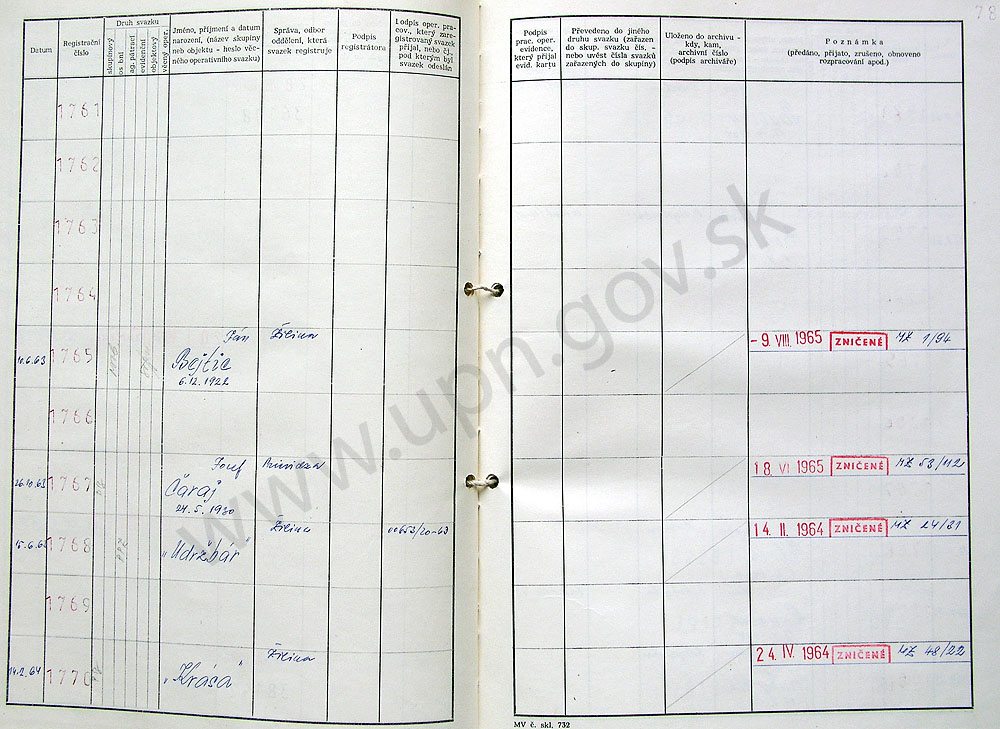 78
Datum
Registrační
číslo
Druh svazku
skupinový
os bní
ag. pátrací
evidenční
objektový
věcný oper.
Jméno, příjmení a datum
narození, (název skupiny
neb objektu - heslo věc-
ného operativního svazku)
Správa, odbor
oddělení, která
svazek registruje
Podpis
registrátora
Iodpis oper. pra-
cov., který zare-
gistrovaný svazek
přijal, nebo čj.
pod kterým byl
svazek odeslán
Podpis
prac. oper.
evidence,
který přijal
evid. kartu
Převedeno do jiného
druhu svazku (zařazen
do skup. svazku čís. -
nebo uvést čísla svazků
zařazených do skupiny)
Uloženo do archivu -
kdy, kam,
archivní číslo
(podpis archiváře)
Poznámka
(předáno, přijato, zrušeno, obnoveno
rozpracování apod.)
1761
1762
1763
1764
1765 Ján Žilina
Bejtic
6.12.1922
- 9. VIII. 1965 ZNIČENÉ MZ 1/94
1766
26.10.63 1767 Jozef Prievidza
Čaraj
24.5.1930
18. VI 1965 ZNIČENÉ MZ 53/112
15.6.63 1768 Žilina
„Udržbár"
14. II. 1964 ZNIČENÉ MZ 24/31
1769
14.2.64 1770 Žilina
„Krása"
24. IV. 1964 ZNIČENÉ MZ 48/22
MV č. skl. 732
www.upn.gov.sk